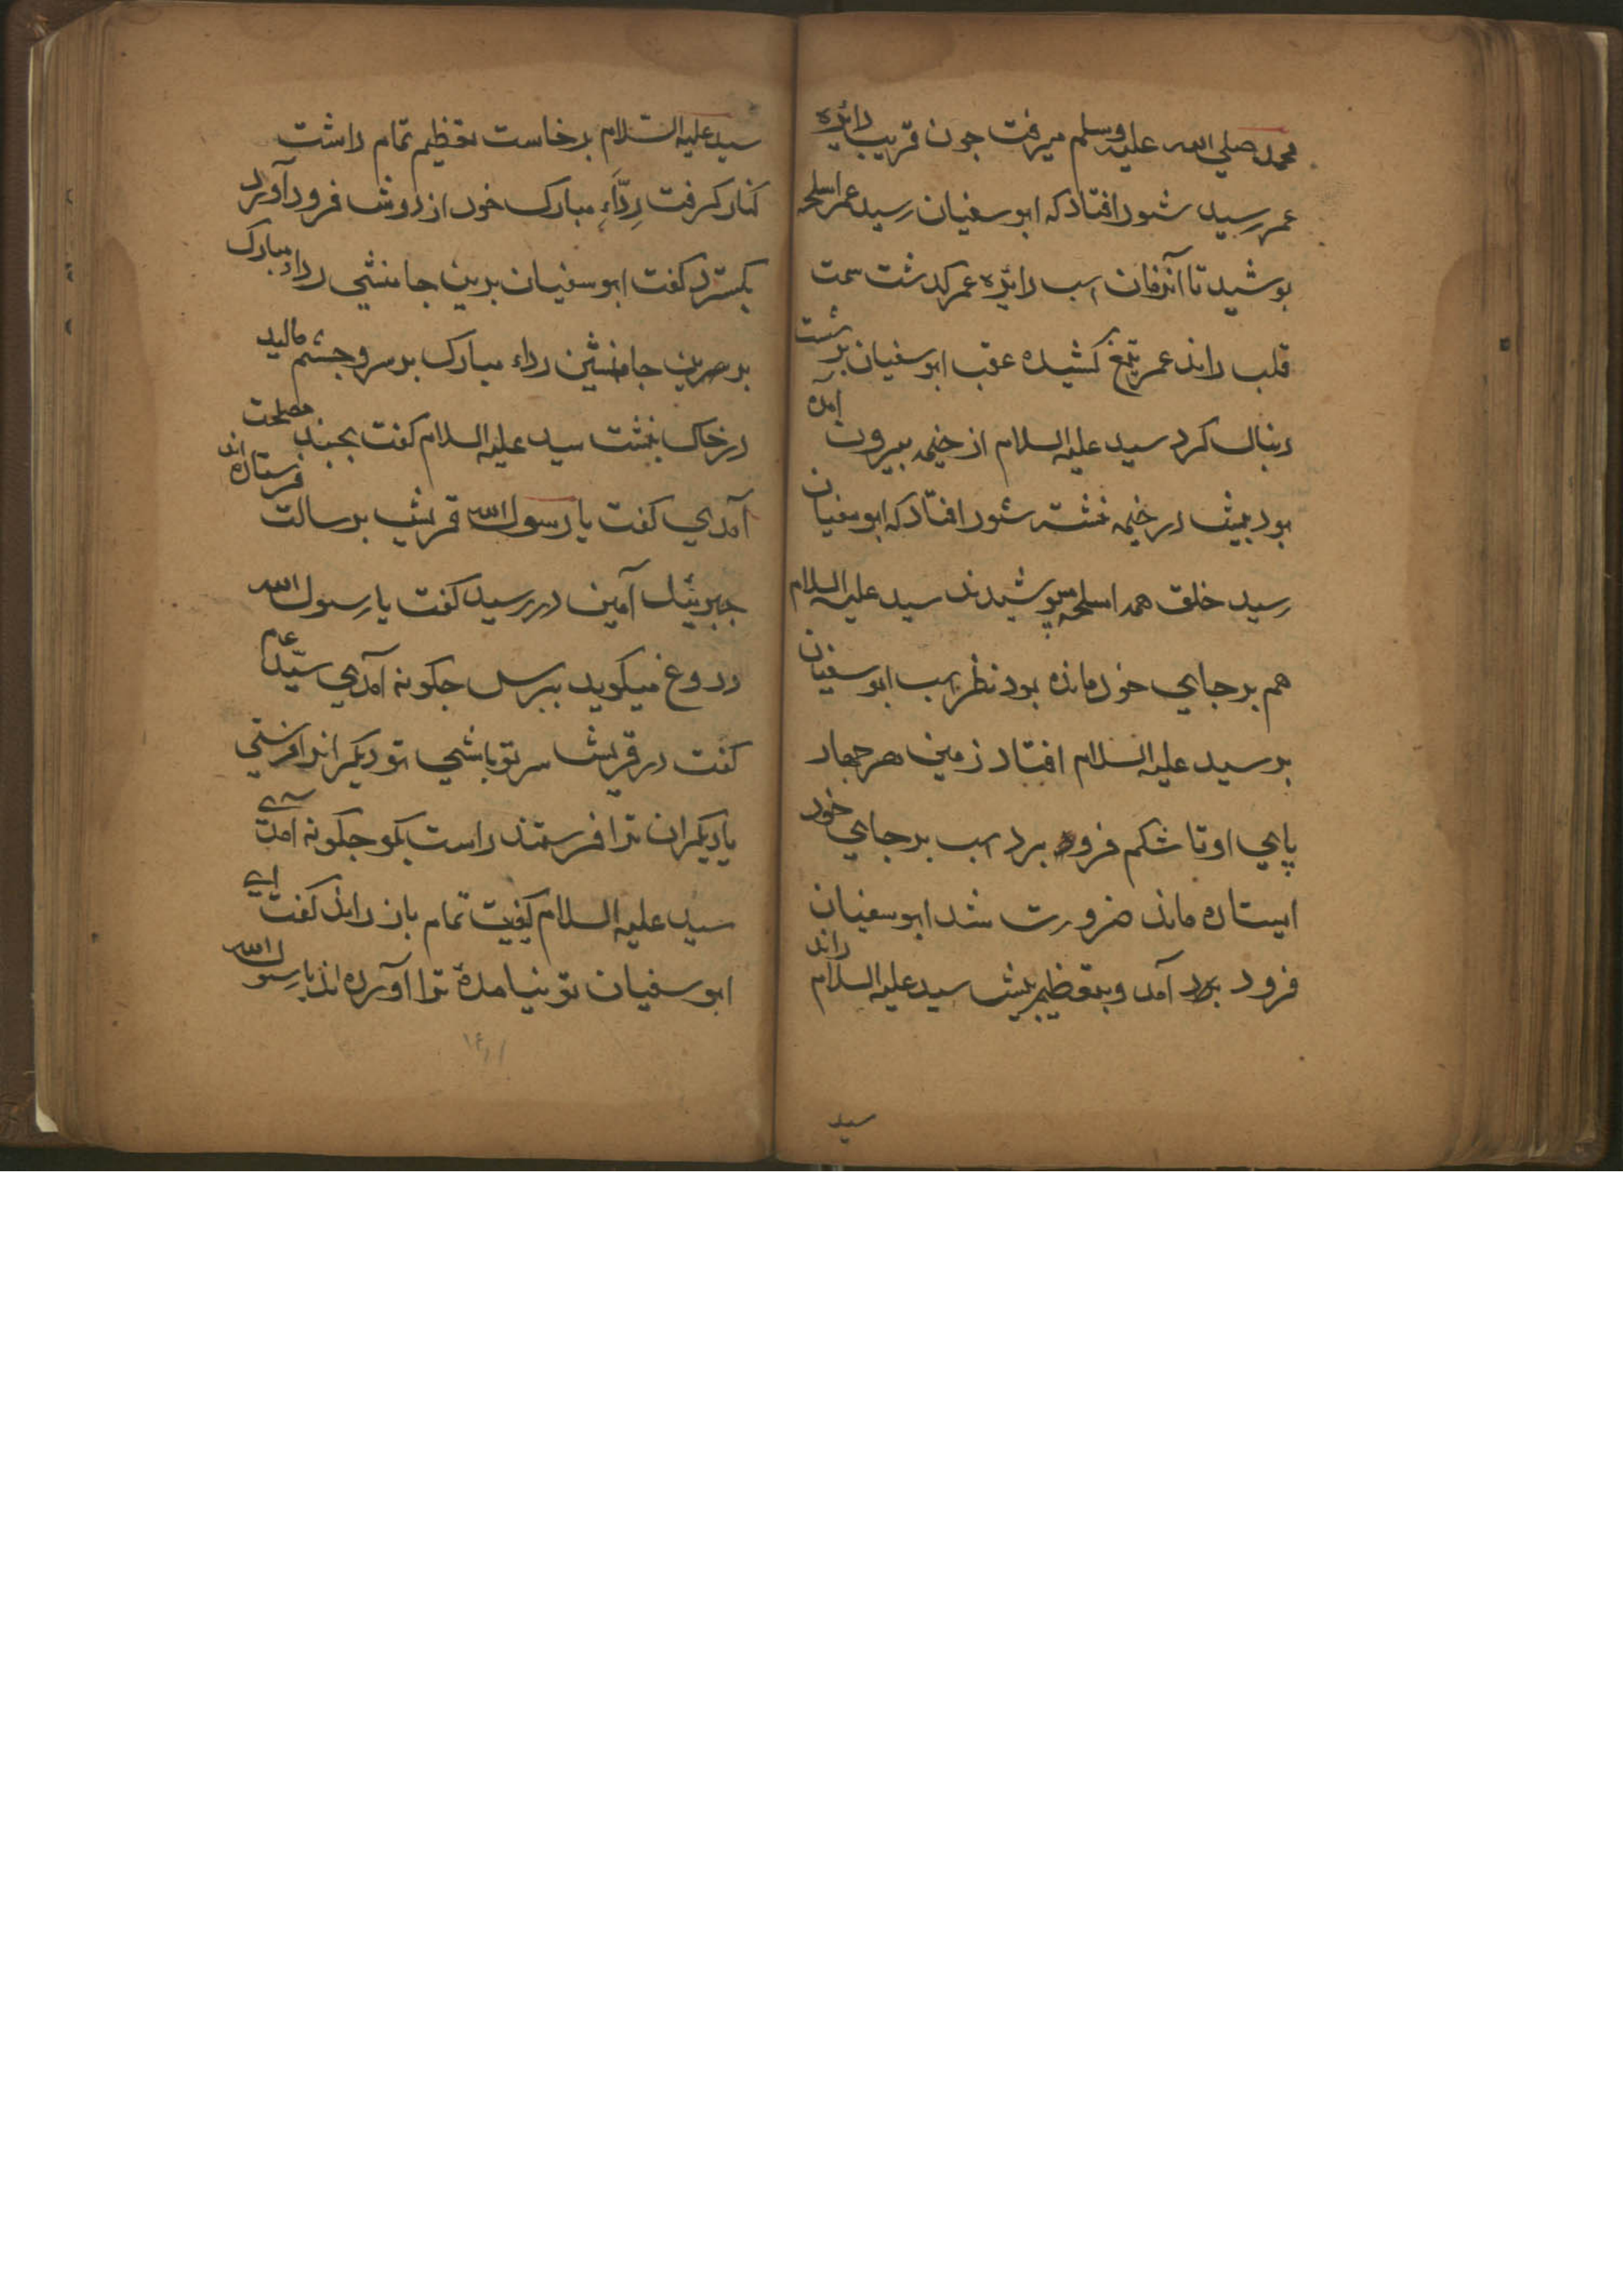 محمد صلي الله عليه وسلم ميرفت جون قريب دائره
عمر رسيد شور افتاد كه ابو سفيان رسيد عمر اسلحه
بوشيد تا آنزمان اسب دائره عمر كدشت سمت
قلب راند عمر تيغ كشيده عقب ابو سفيان بر شست
دنبال كرد سيد عليه السلام از خيمه بيرون آمده
بود بيش در خيمه نشسته شور افتاد كه ابو سفيان
رسيد خلق همه اسلحه بوشيدند سيد عليه السلام
هم بر جاي خود مانده بود نظر اسب ابو سفيان
بر سيد عليه السلام افتاد زمين هر جهار
پاي او تا شكم فرو برد اسب بر جاي خود
ايستاده ماند ضرورت شد ابو سفيان
فرود آمد و بتعظيم بيش سيد عليه السلام راند
سيد
سيد عليه السلام برخاست تعظيم تمام داشت
كنار كرفت رداء مبارك خود از دوش فرود آورد
بكسترد كفت ابو سفيان بدين جا منشي رداء مبارك
بدين جا منشين رداء مبارك بر سر و جشم ماليد
در خاك نشست سيد عليه السلام كفت بجند مصلحت
آمدي كفت يا رسول الله قريش برسالت فرستاده اند
جبرئيل آمين در رسيد كفت يا رسول الله
دروغ ميكويد ببرس جكونه آمدي سيد عم
كفت در قريش سر تو باشي تو ديكرانرا فرستي
يا ديكران ترا فرستند راست بكو جكونه آمدئ
سيد عليه السلام كيفيت تمام باز راند كفت اي
ابو سفيان تو نيامدهٔ ترا آورده اند يا رسول الله